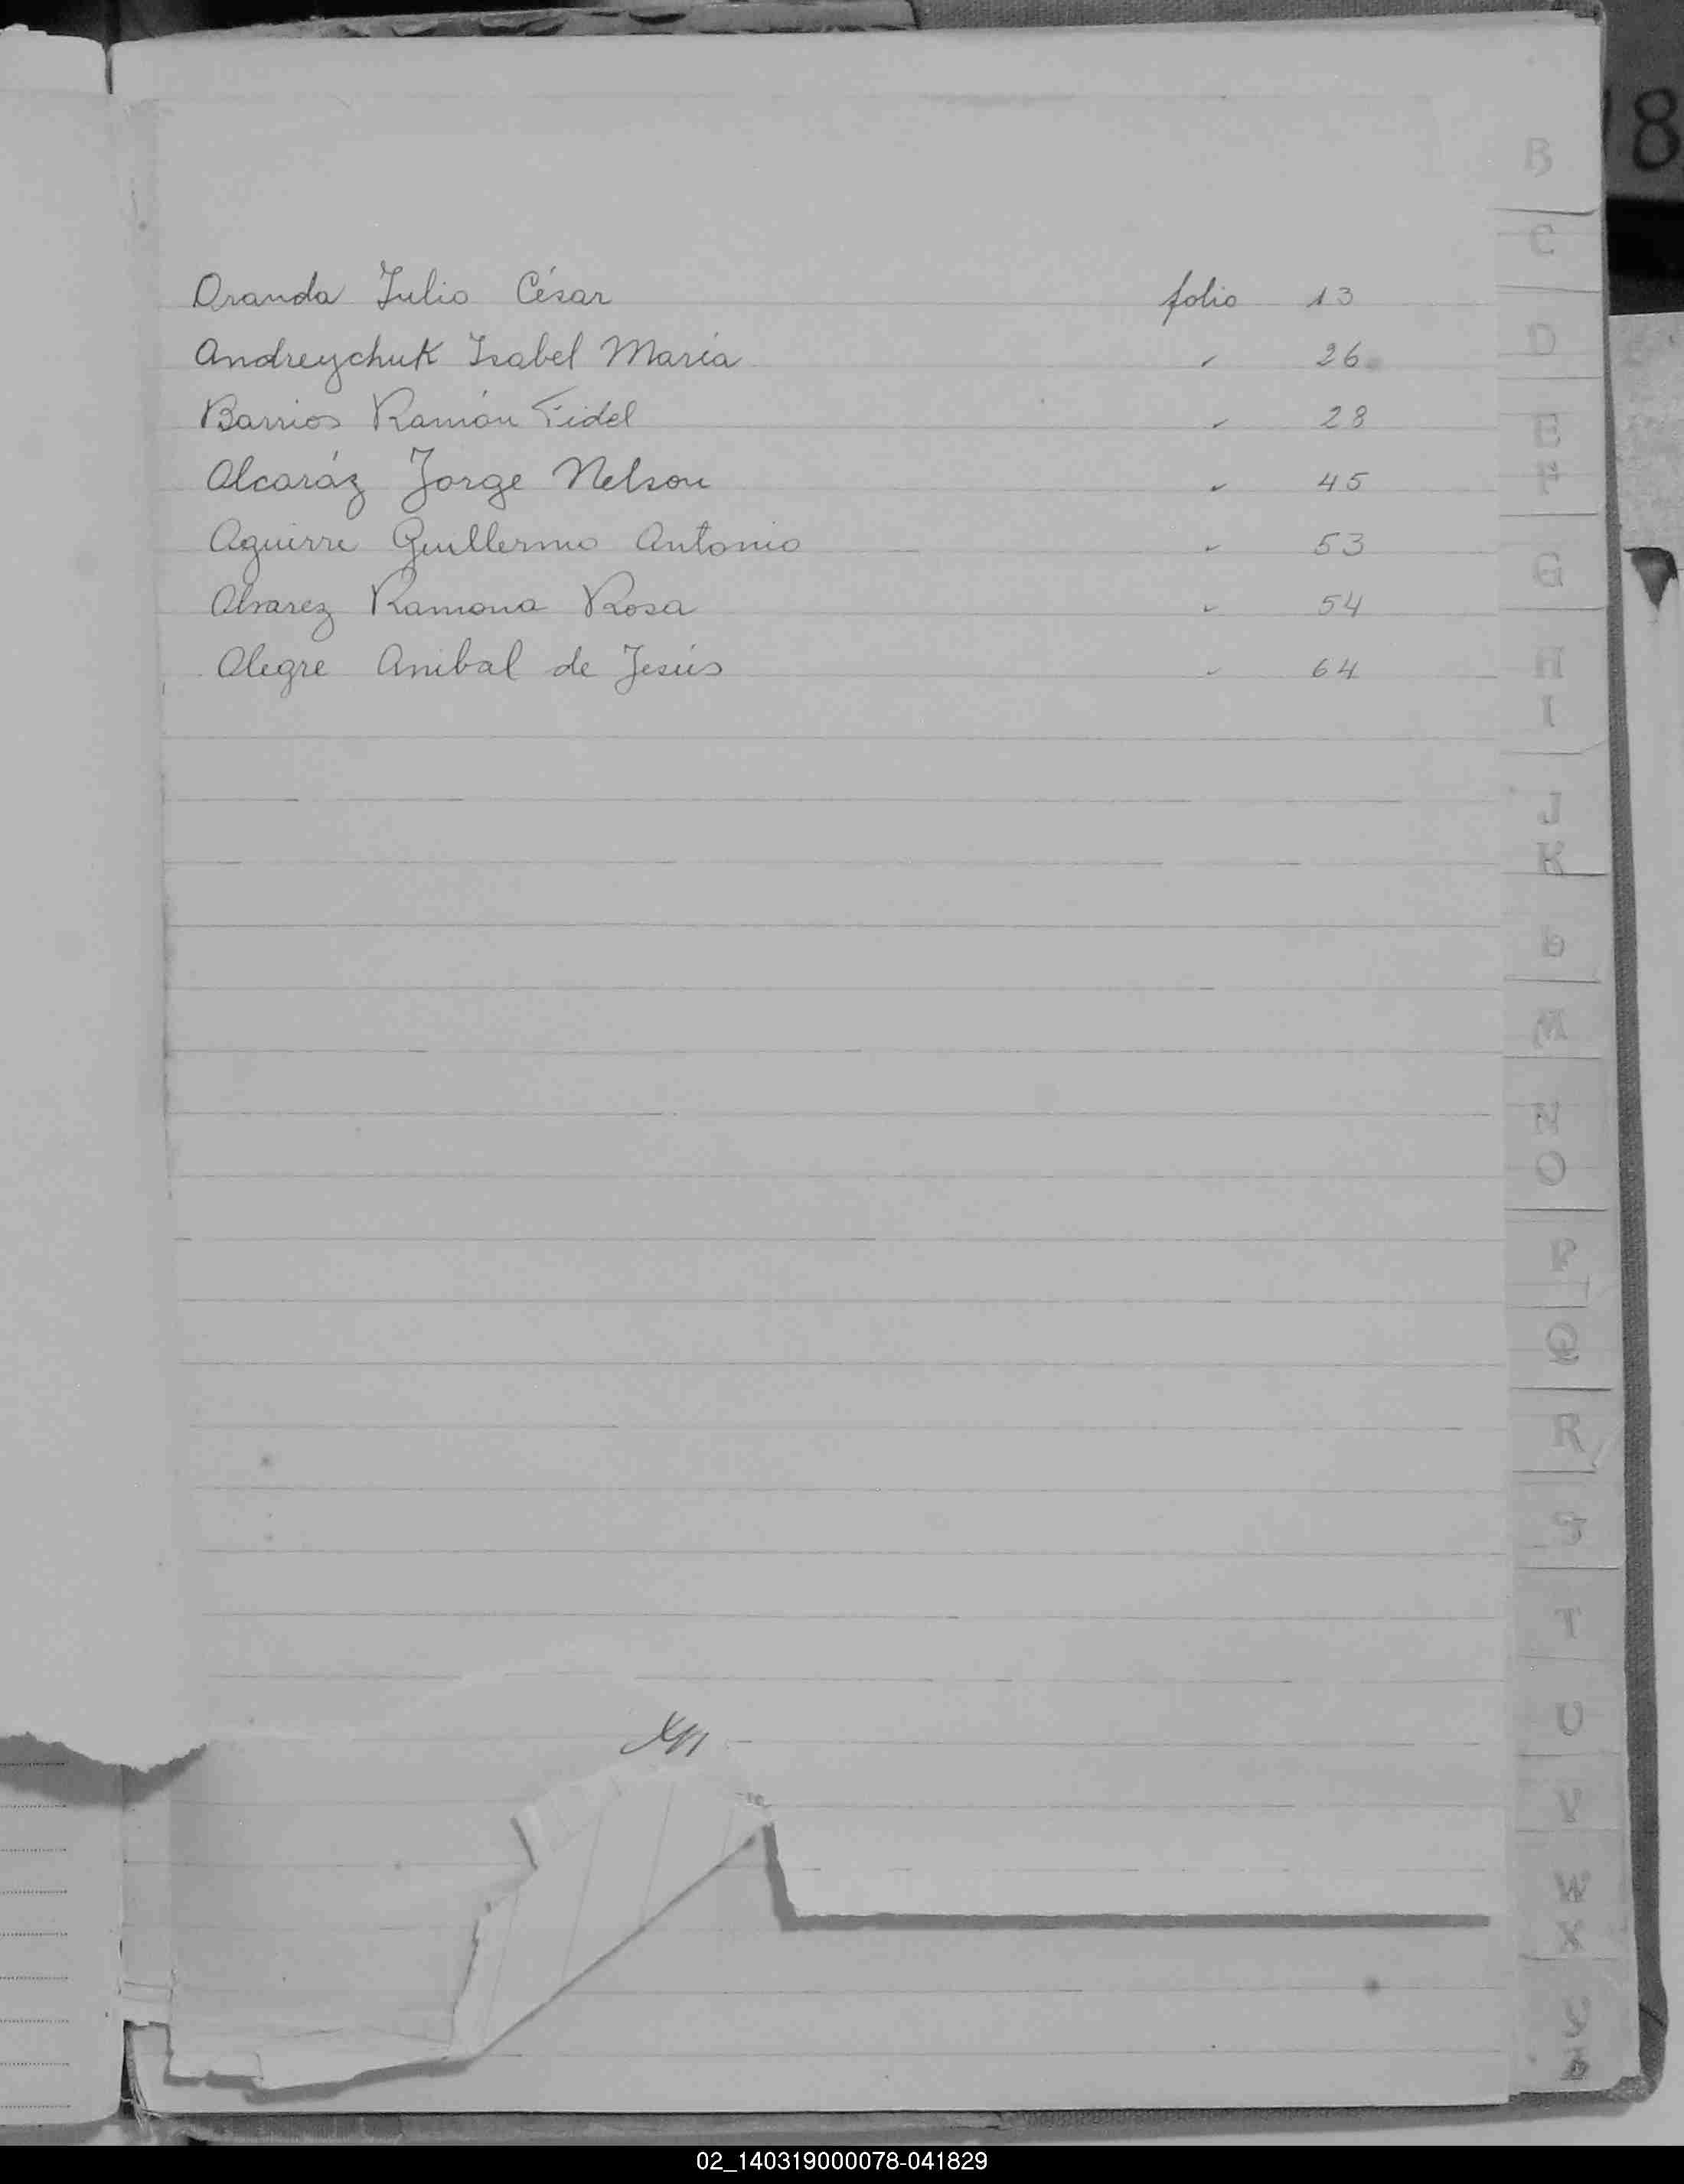 Aranda Julio César folio 13
Andreychuk Isabel María " 26
Barrios Ramón Fidel " 28
Alcaráz Jorge Nelson " 45
Aguirre Guillermo Antonio " 53
Alvarez Ramona Rosa " 54
Alegre Anibal de Jesús " 64
B
C
D
E
F
G
H
I
J
K
M
N
O
P
Q
R
S
T
U
V
W
X
8
02_140319000078-041829